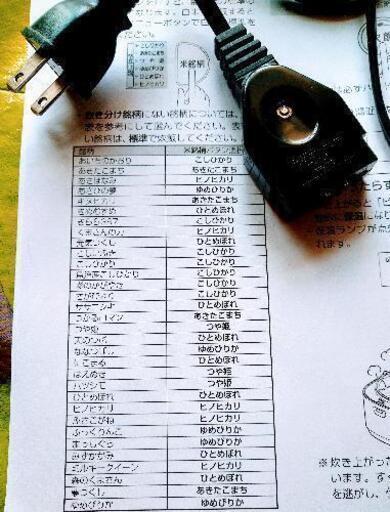 ります。日本
ニューボタンで白
ださい。
こしひかり
ゆめぴりか
ひとめぼれ
ヒノヒカリ
米銘柄
・炊き分け銘柄にない銘柄については、
表を参考にして選んでください。表
い銘柄は、標準で炊飯してください。
銘柄 米銘柄ボタン
あいちのかおり こしひかり
あきたこまち あきたこまち
あきほなみ ヒノヒカリ
あさひの夢 ゆめぴりか
キヌヒカリ あきたこまち
きぬむすめ ひとめぼれ
きらら397 こしひかり
くまさんの力 ヒノヒカリ
元気つくし ひとめぼれ
こしいぶき こしひかり
こしひかり こしひかり
魚沼産こしひかり こしひかり
夢のかがやき こしひかり
さがびより こしひかり
ササニシキ ひとめぼれ
つがるロマン あきたこまち
つや姫 つや姫
天のつぶ ひとめぼれ
ななつぼし ゆめぴりか
にこまる ひとめぼれ
はえぬき つや姫
ハツシモ つや姫
ひとめぼれ ひとめぼれ
ヒノヒカリ ヒノヒカリ
ふさこがね ヒノヒカリ
ふっくりんこ ゆめぴりか
まっしぐら ゆめぴりか
みずかがみ ひとめぼれ
ミルキークイーン ヒノヒカリ
森のくまさん ひとめぼれ
夢つくし あきたこまち
ゆめぴりか ゆめぴりか
たらす
上がると「ピ
保温にな
保温ランプが点
れます。
※炊き上がった
います。す
を逃がし、